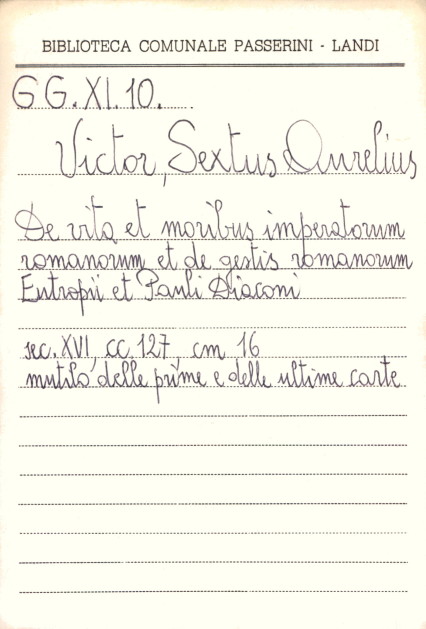 BIBLIOTECA COMUNALE PASSERINI - LANDI
GG.XI.10.
Victor, Sextus Aurelius
De vita et moribus imperatorum
romanorum et de gestis romanorum
Eutropii et Pauli Diaconi
sec. XVI, cc. 127, cm 16
mutilo delle prime e delle ultime carte